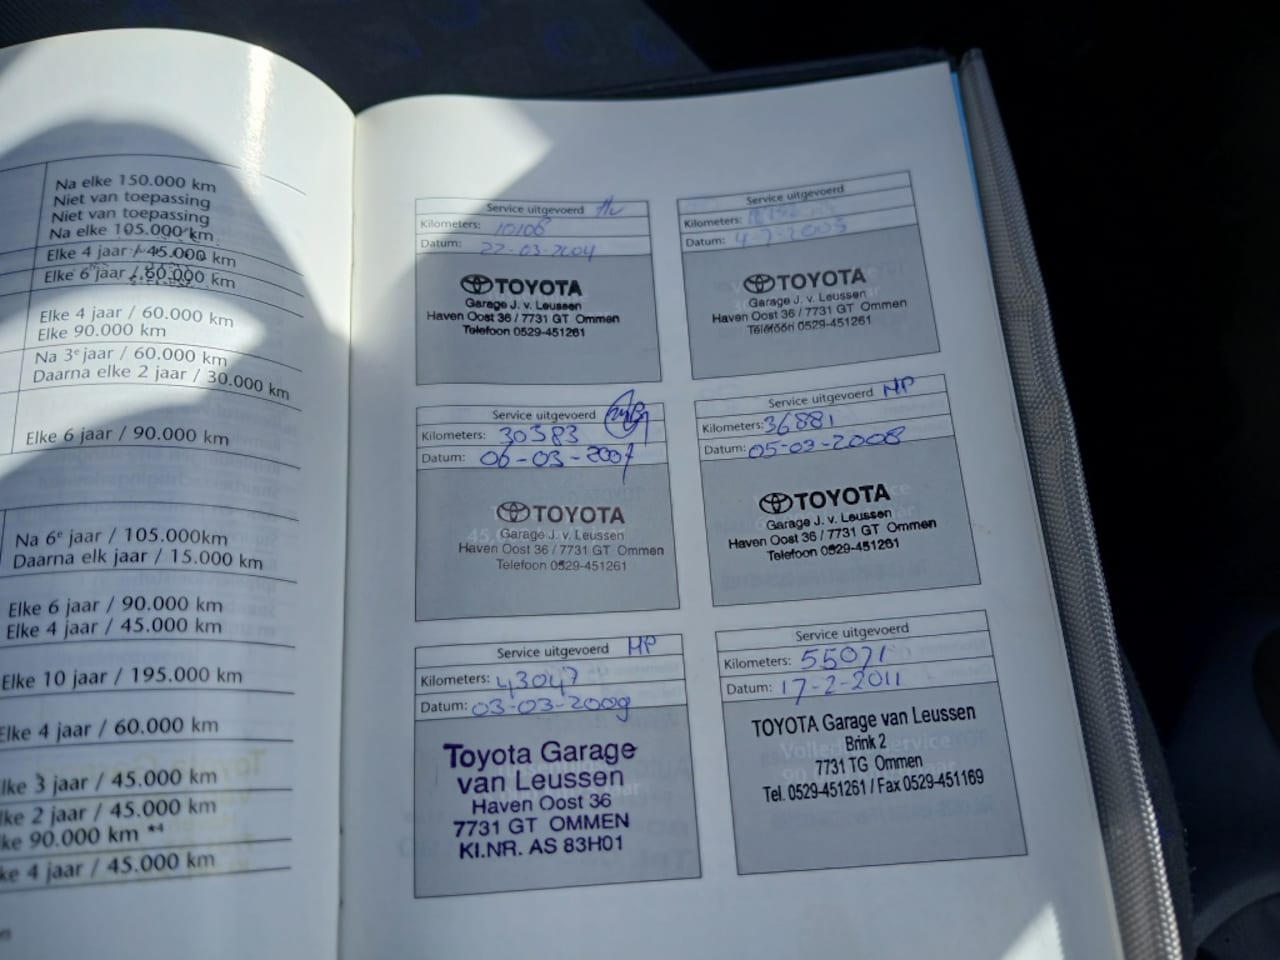 Na elke 150.000 km
Niet van toepassing
Niet van toepassing
Na elke 105.000 km
Elke 4 jaar / 45.000 km
Elke 6 jaar / 80.000 km
Elke 4 jaar / 60.000 km
Elke 90.000 km
Na 3e jaar / 60.000 km
Daarna elke 2 jaar / 30.000 km
Elke 6 jaar / 90.000 km
Na 6e jaar / 105.000km
Daarna elk jaar / 15.000 km
Elke 6 jaar / 90.000 km
Elke 4 jaar / 45.000 km
Elke 10 jaar / 195.000 km
Elke 4 jaar / 60.000 km
lke 3 jaar / 45.000 km
lke 2 jaar / 45.000 km
lke 90.000 km *4
ke 4 jaar / 45.000 km
Service uitgevoerd
Kilometers: 10106
Datum: 22-03-2004
TOYOTA
Garage J. v. Leussen
Haven Oost 36 / 7731 GT Ommen
Telefoon 0529-451261
Service uitgevoerd
Kilometers:
Datum: 4-7-2005
TOYOTA
Garage J. v. Leussen
Haven Oost 36 / 7731 GT Ommen
Telefoon 0529-451261
Service uitgevoerd
Kilometers: 30383
Datum: 06-03-2007
TOYOTA
Garage J. v. Leussen
Haven Oost 36 / 7731 GT Ommen
Telefoon 0529-451261
Service uitgevoerd MP
Kilometers: 36881
Datum: 05-03-2008
TOYOTA
Garage J. v. Leussen
Haven Oost 36 / 7731 GT Ommen
Telefoon 0529-451261
Service uitgevoerd MP
Kilometers: 43047
Datum: 03-03-2009
Toyota Garage
van Leussen
Haven Oost 36
7731 GT OMMEN
KI.NR. AS 83H01
Service uitgevoerd
Kilometers: 55071
Datum: 17-2-2011
TOYOTA Garage van Leussen
Brink 2
7731 TG Ommen
Tel. 0529-451261 / Fax 0529-451169